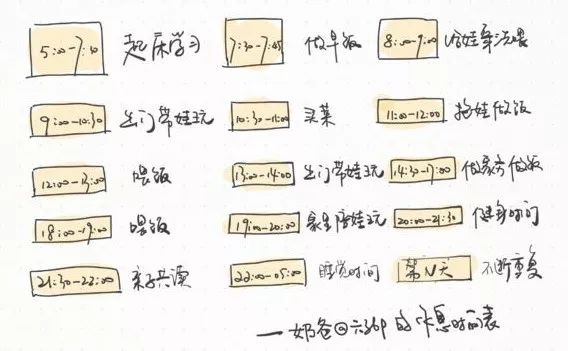 5:00-7:30 起床学习 7:30-7:45 做早饭 8:00-9:00 给娃洗喂
9:00-10:30 出门带娃玩 10:30-11:00 买菜 11:00-12:00 抱娃做饭
12:00-13:00 喂饭 13:00-14:00 出门带娃玩 14:30-17:00 做家务做饭
18:00-19:00 喂饭 19:00-20:00 家里陪娃玩 20:00-21:30 健身时间
21:30-22:00 亲子共读 22:00-05:00 睡觉时间 第N天 不断重复
——奶爸@ 的作息时间表